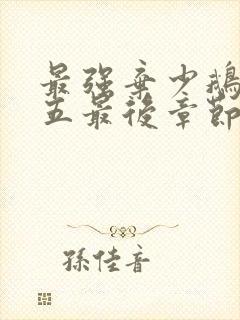 最强棄少鵝
五最後章節
孫佳音